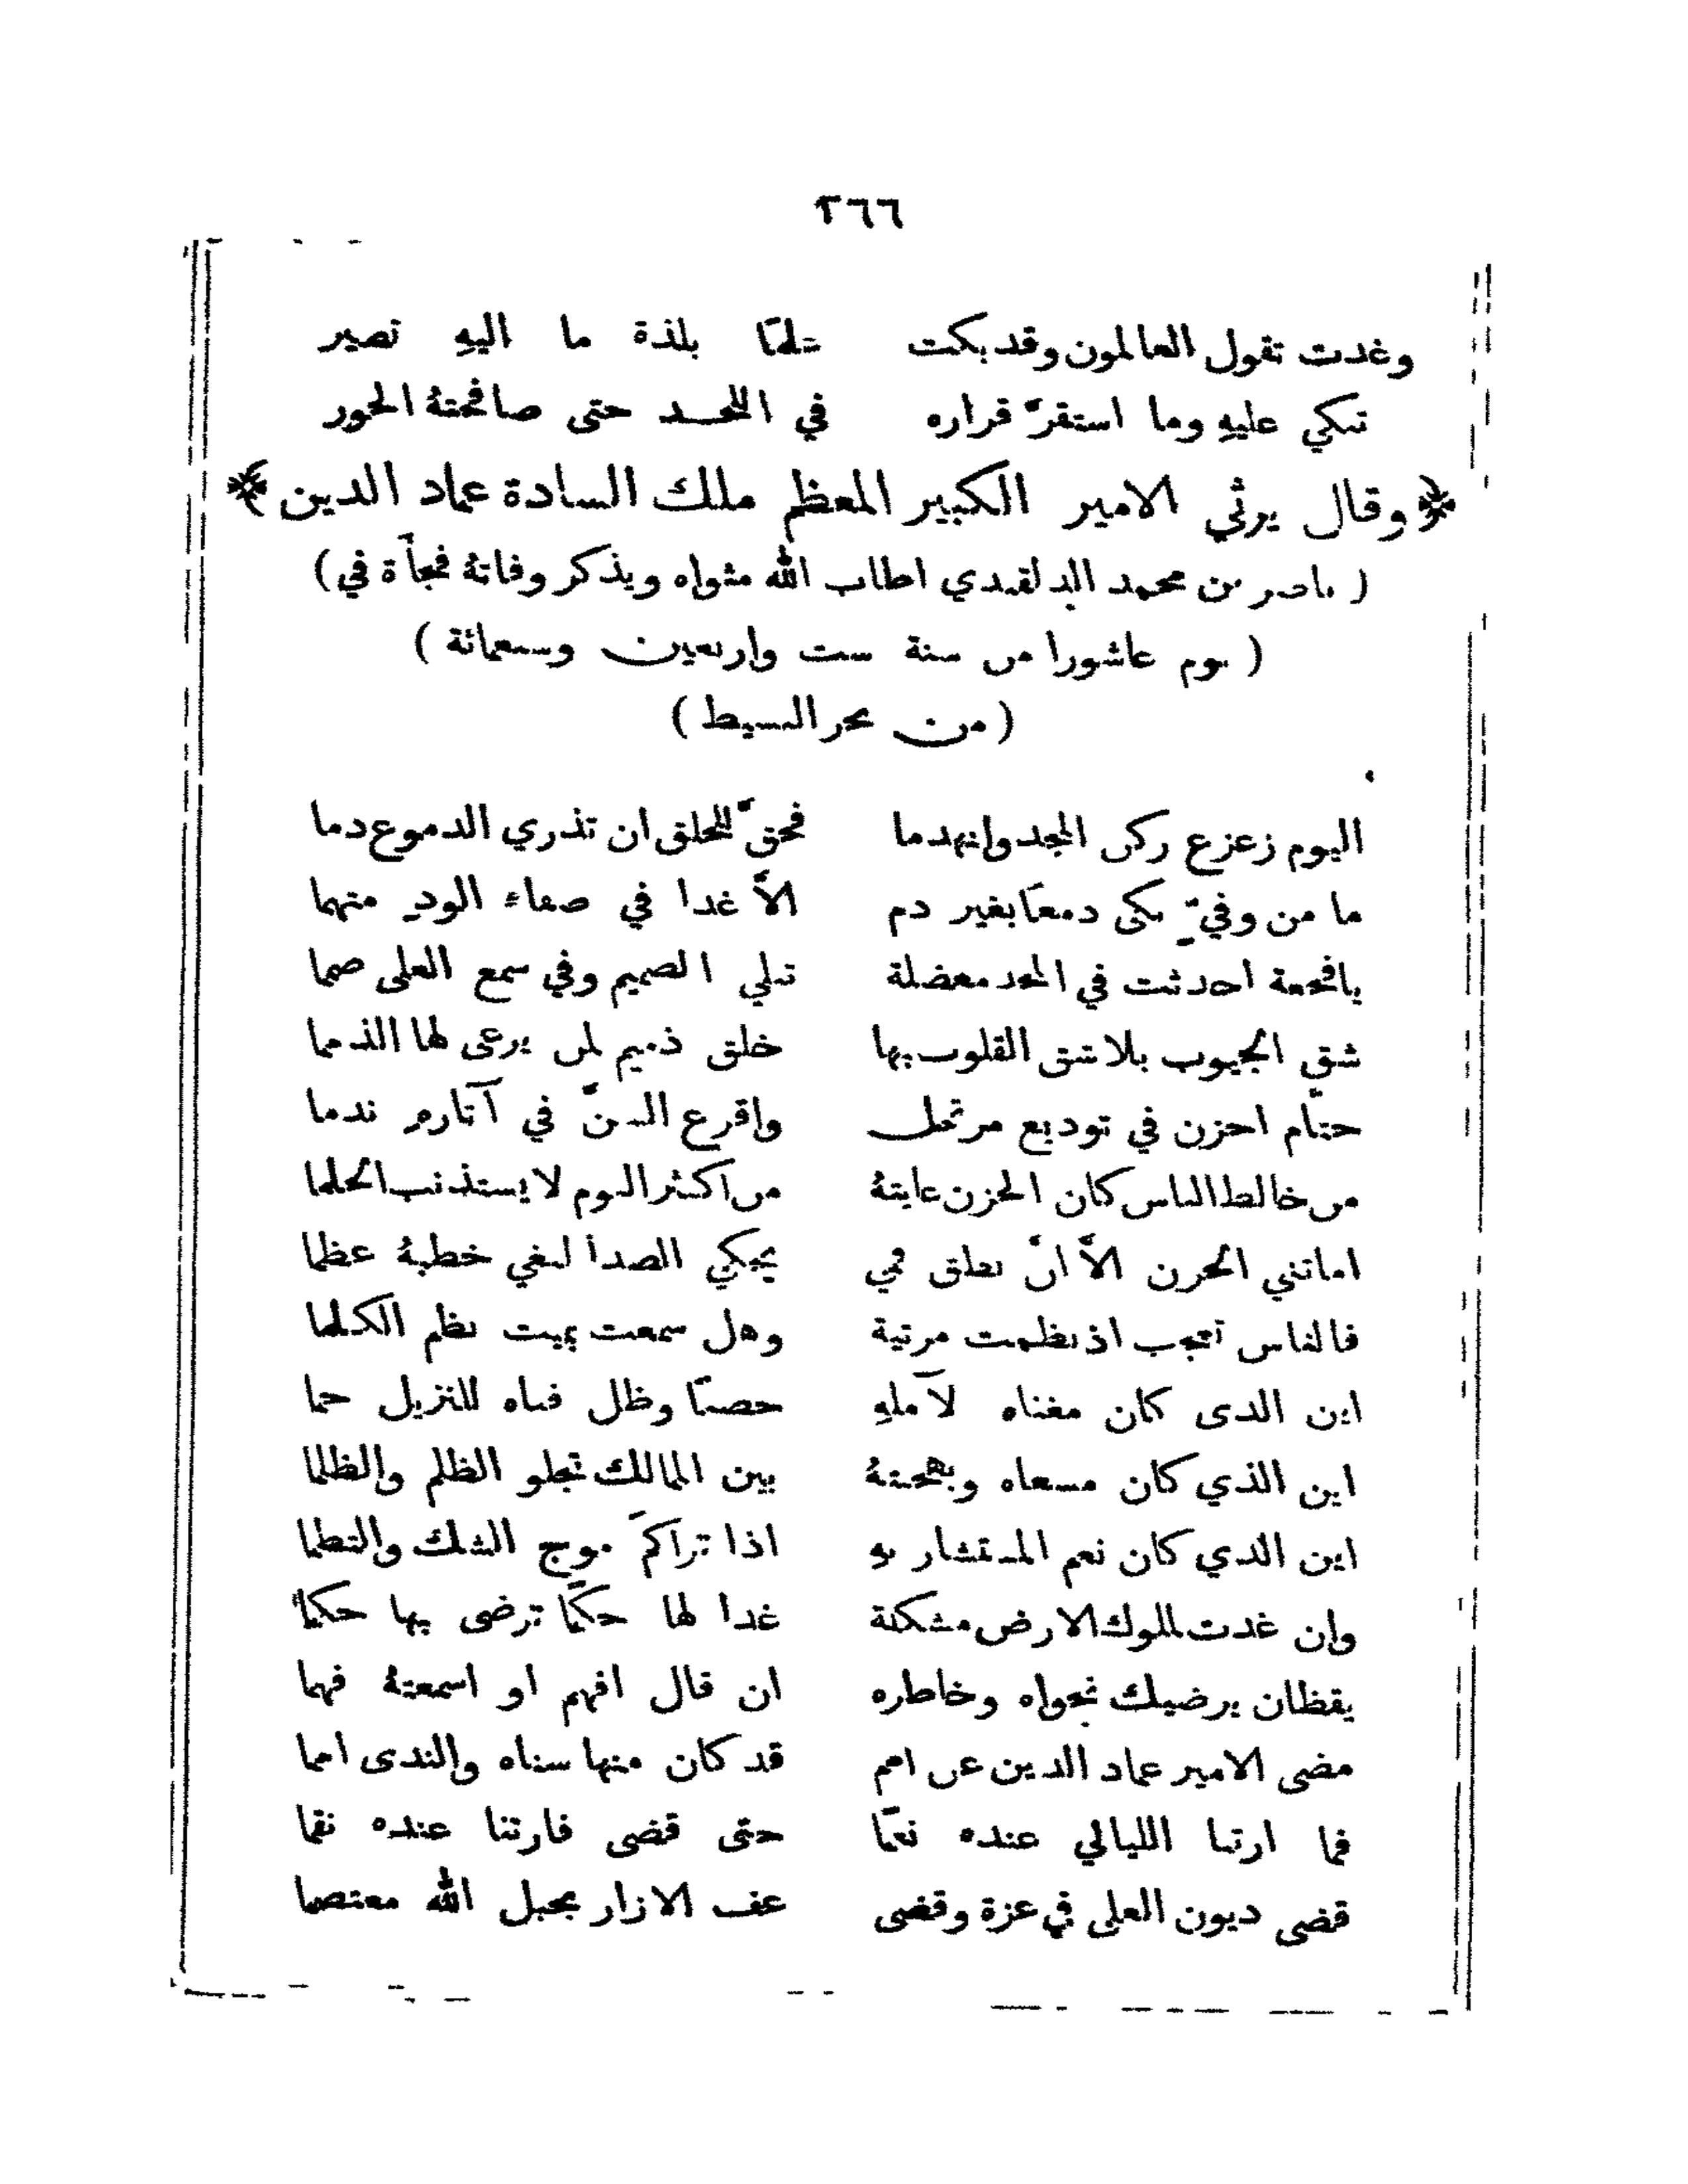 ٢٦٦
وغدت تقول العالمون وقد بكت علمًا بلذة ما اليهِ تصير
تبكي عليهِ وما استقرّ قراره في اللحد حتى صافحتهُ الحور
وقال يرثي الامير الكبير المعظم ملك السادة عماد الدين
( ناصر بن محمد الدلقندي اطاب الله مثواه ويذكر وفاتهُ فجأة في )
( يوم عاشورا من سنة ست واربعين وسبعمائة )
( من بحر البسيط )
اليوم زعزع ركن المجد وانهدما فحقّ للخلق ان تذري الدموع دما
ما من وفيّ بكى دمعًا بغير دم الّا غدا في صفاء الودِ متهما
يا فجعة احدثت في المجد معضلة تبلي الصميم وفي سمع العلى صمما
شق الجيوب بلا شق القلوب بها خلق ذميم لمن يرعى لها الذمما
حتّام احزن في توديع مرتحل واقرع السنّ في آثارهِ ندما
من خالط الناس كان الحزن غايتهُ من اكثر النوم لا يستذنب الحلما
اماتني الحزن الّا انّ نطق فمي يحكي الصدا لبغي خطبهُ عظما
فالناس تعجب اذ نظمت مرثية وهل سمعت بميت نظم الكلما
اين الذي كان مغناه لآملهِ حصنًا وظل فناه للنزيل حما
اين الذي كان مسعاه وبهجتهُ بين الممالك تجلو الظلم والظلما
اين الذي كان نعم المستشار بهِ اذا تراكمَ موج الشك والتطما
وان غدت لملوك الارض مشكلة غدا لها حكمًا ترضى بها حكما
يقظان يرضيك نجواه وخاطره ان قال افهم او اسمعتهُ فهما
مضى الامير عماد الدين عن امم قد كان منها سناه والندى امما
فما ارتنا الليالي عنده نعمًا حتى قضى فارتنا عنده نقما
قضى ديون العلى في عزة وقضى عف الازار بحبل الله معتصما